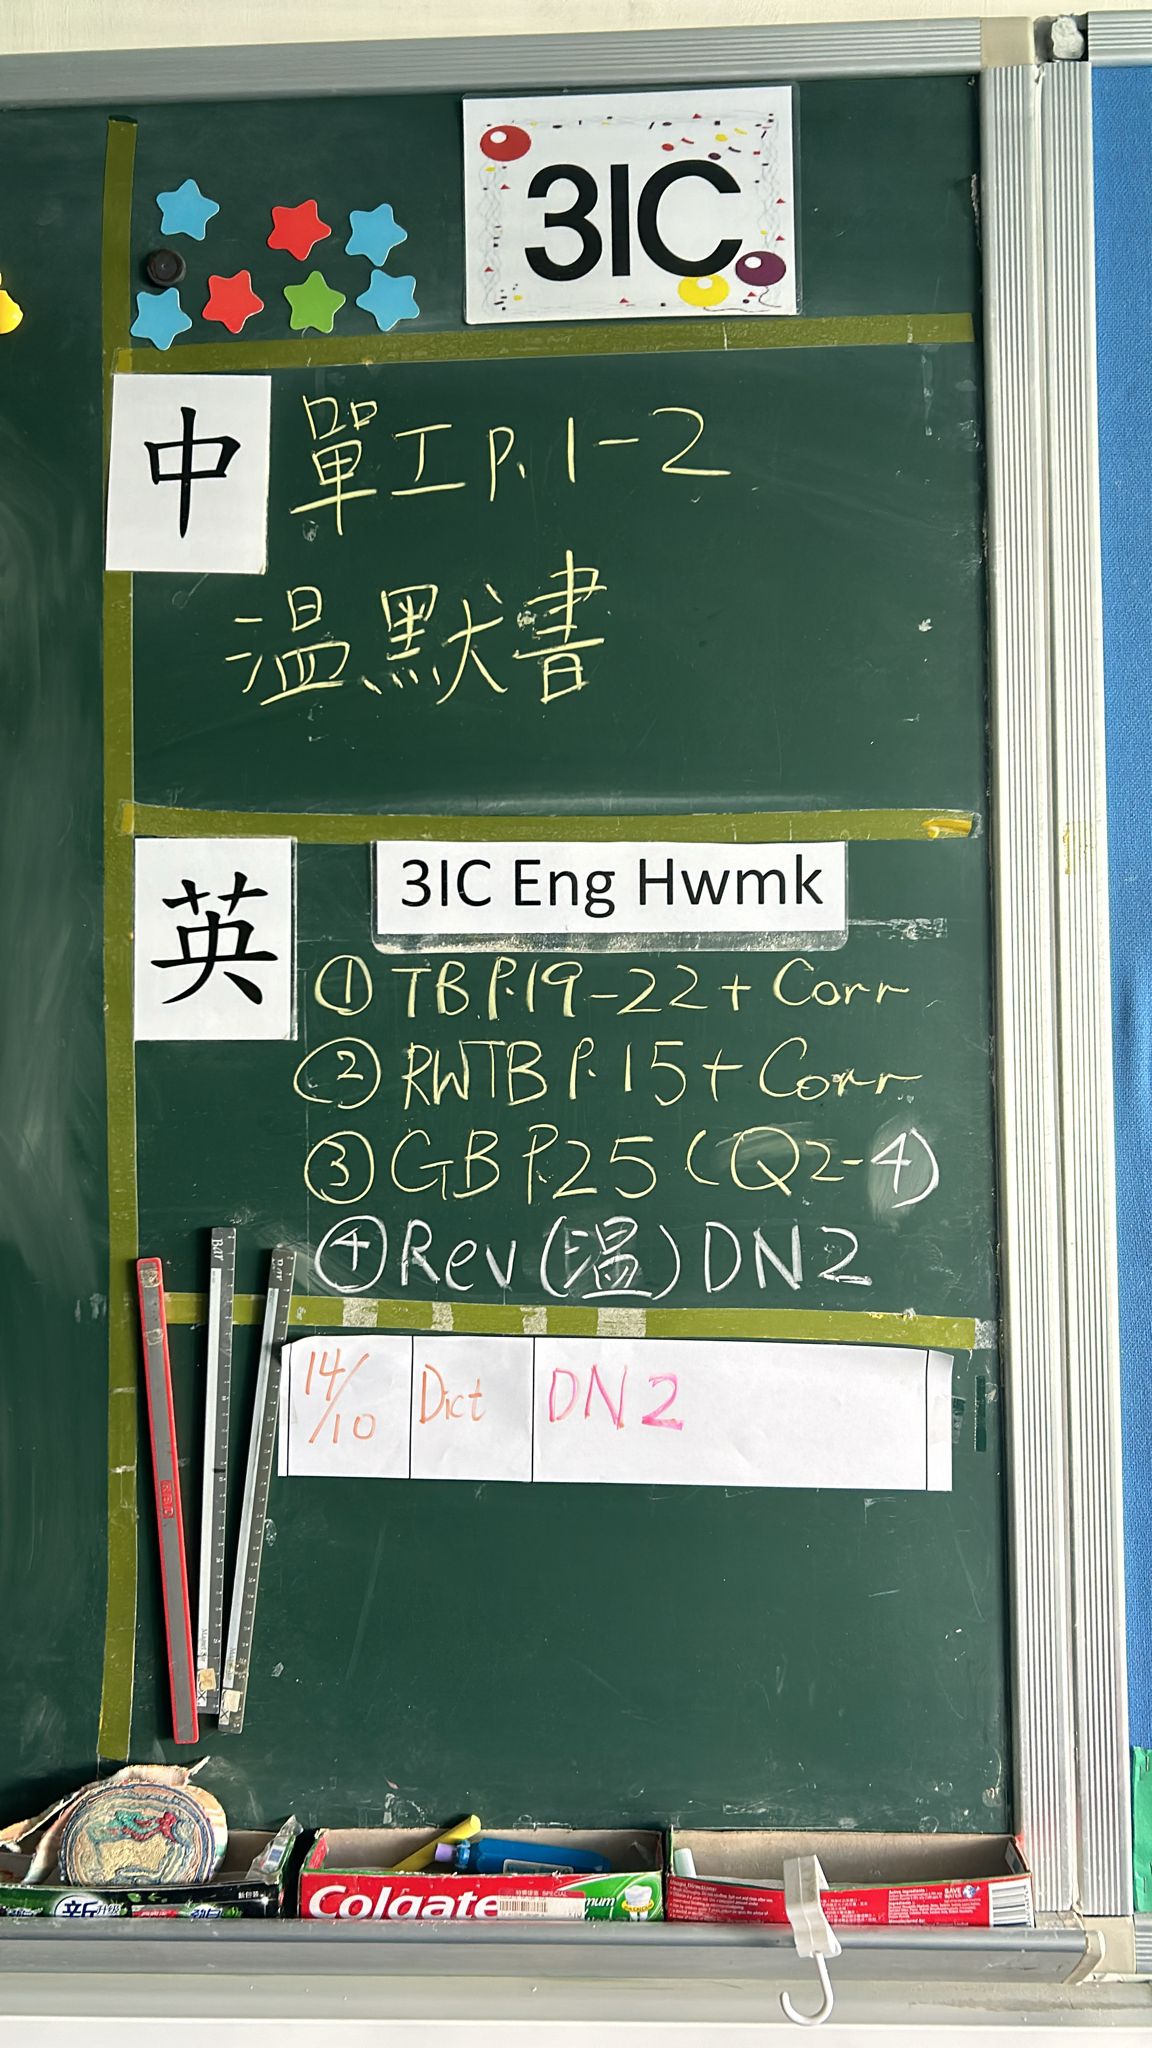 3IC
中
單工 P.1-2
溫默書
英
3IC Eng Hwmk
① TB P.19-22 + Corr
② RWTB P.15 + Corr
③ GB P.25 (Q2-4)
④ Rev (溫) DN2
14/10 Dict DN 2
Colgate